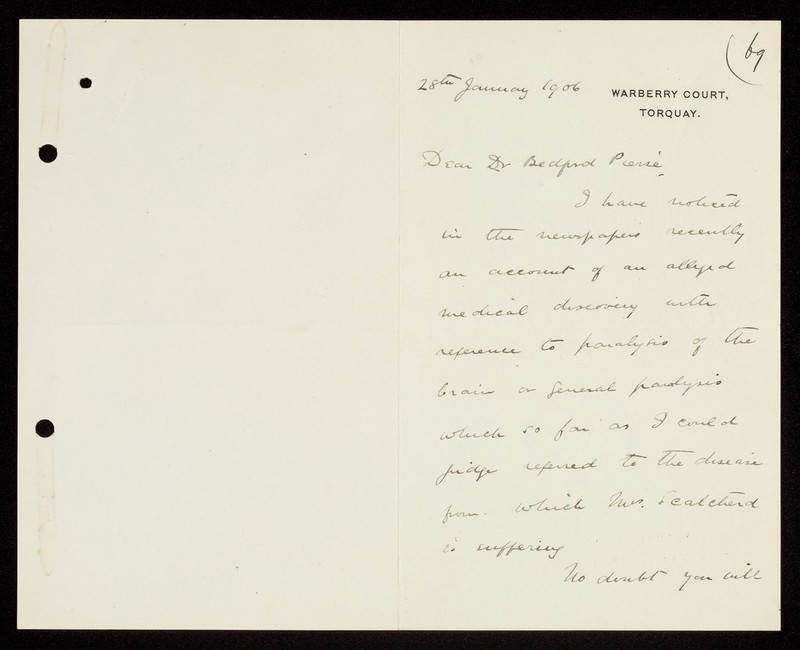 69
28th January 1906
WARBERRY COURT,
TORQUAY.
Dear Dr Bedford Pierce,
I have noticed
in the newspapers recently
an account of an alleged
medical discovery with
reference to paralysis of the
brain or general paralysis
which so far as I could
judge referred to the disease
from which Mrs. Scatcherd
is suffering
No doubt you will